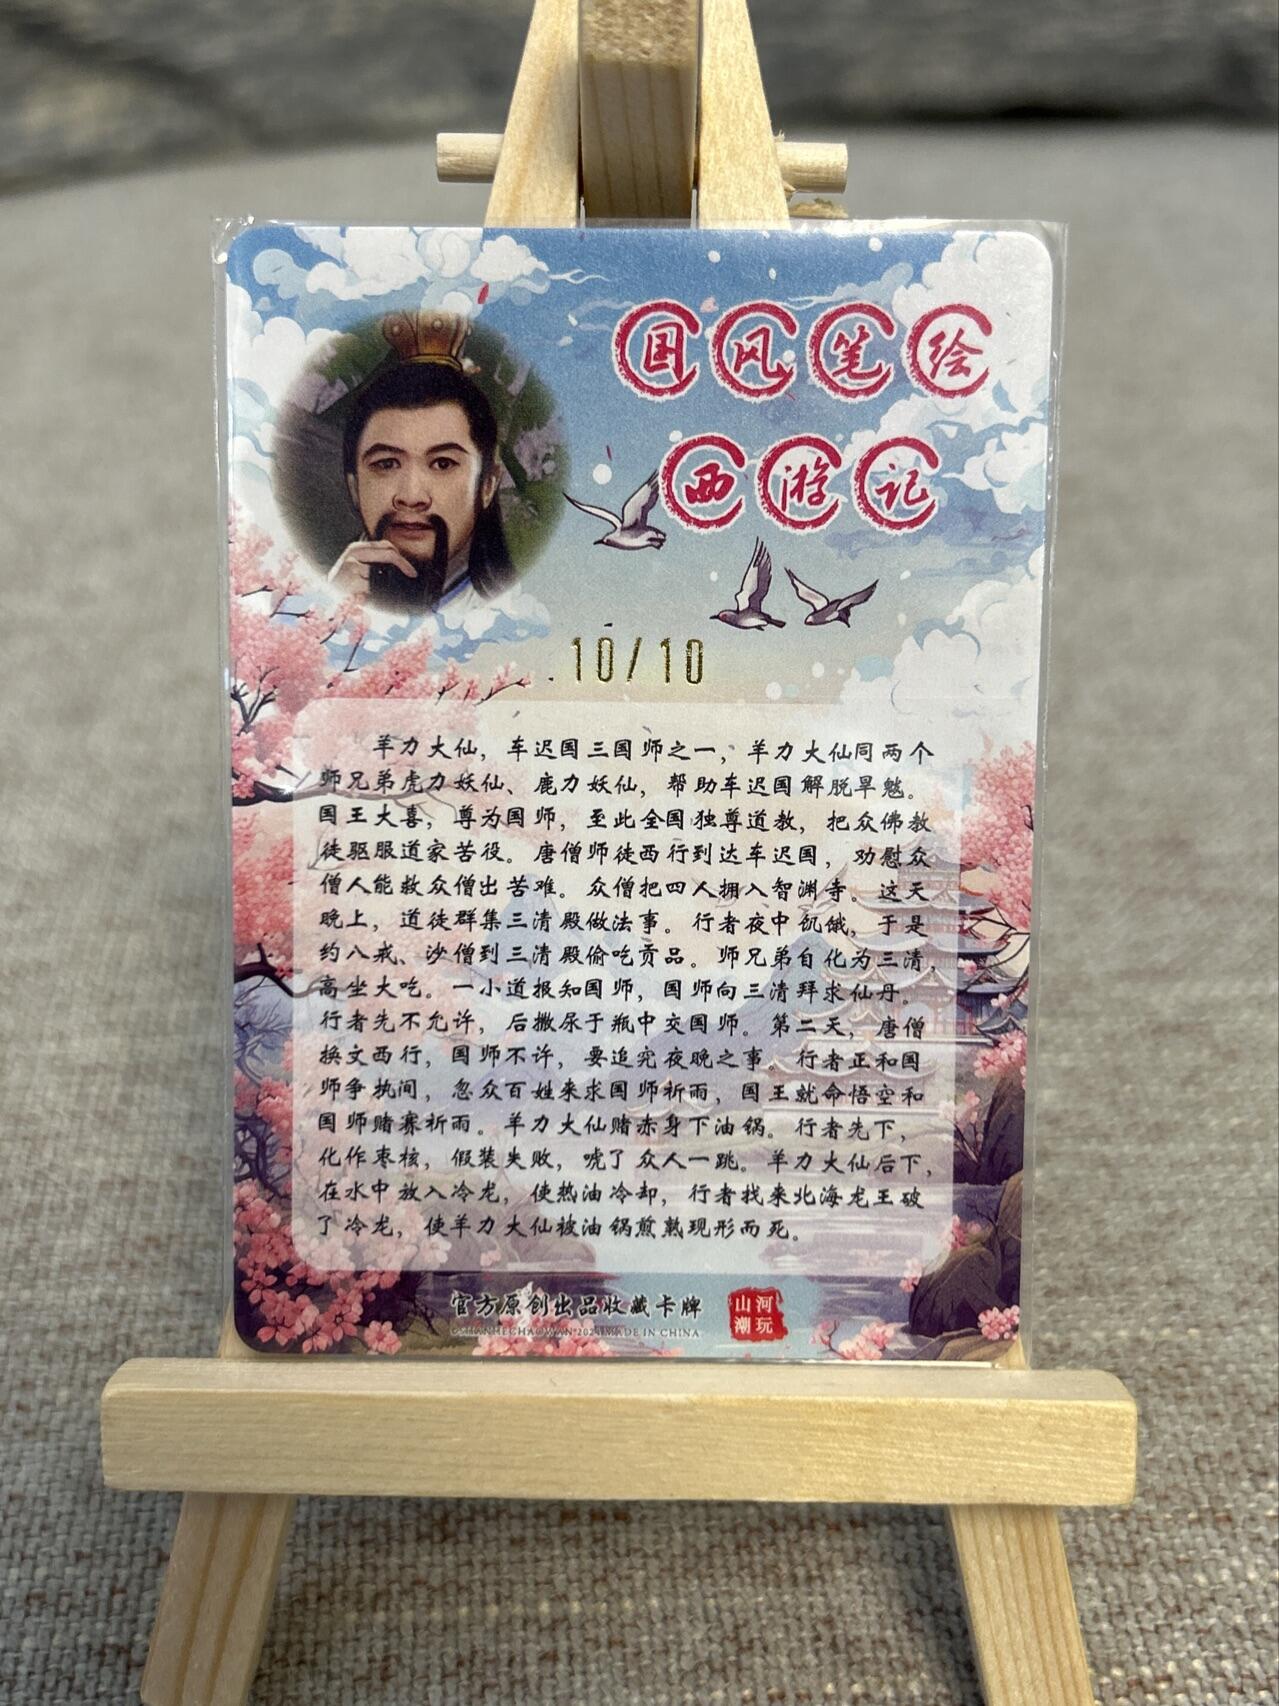 国风笔绘
西游记
10/10
羊力大仙，车迟国三国师之一，羊力大仙同两个
师兄弟虎力妖仙、鹿力妖仙，帮助车迟国解脱旱魃。
国王大喜，尊为国师，至此全国独尊道教，把众佛教
徒驱服道家苦役。唐僧师徒西行到达车迟国，劝慰众
僧人能救众僧出苦难。众僧把四人拥入智渊寺。这天
晚上，道徒群集三清殿做法事。行者夜中饥饿，于是
约八戒、沙僧到三清殿偷吃贡品。师兄弟自化为三清，
高坐大吃。一小道报知国师，国师向三清拜求仙丹。
行者先不允许，后撒尿于瓶中交国师。第二天，唐僧
换文西行，国师不许，要追究夜晚之事。行者正和国
师争执间，忽众百姓来求国师祈雨，国王就命悟空和
国师赌赛祈雨。羊力大仙赌赤身下油锅。行者先下，
化作枣核，假装失败，唬了众人一跳。羊力大仙后下，
在水中放入冷龙，使热油冷却，行者找来北海龙王破
了冷龙，使羊力大仙被油锅煎熟现形而死。
官方原创出品收藏卡牌
山河
潮玩
SHANHECHAOWAN MADE IN CHINA